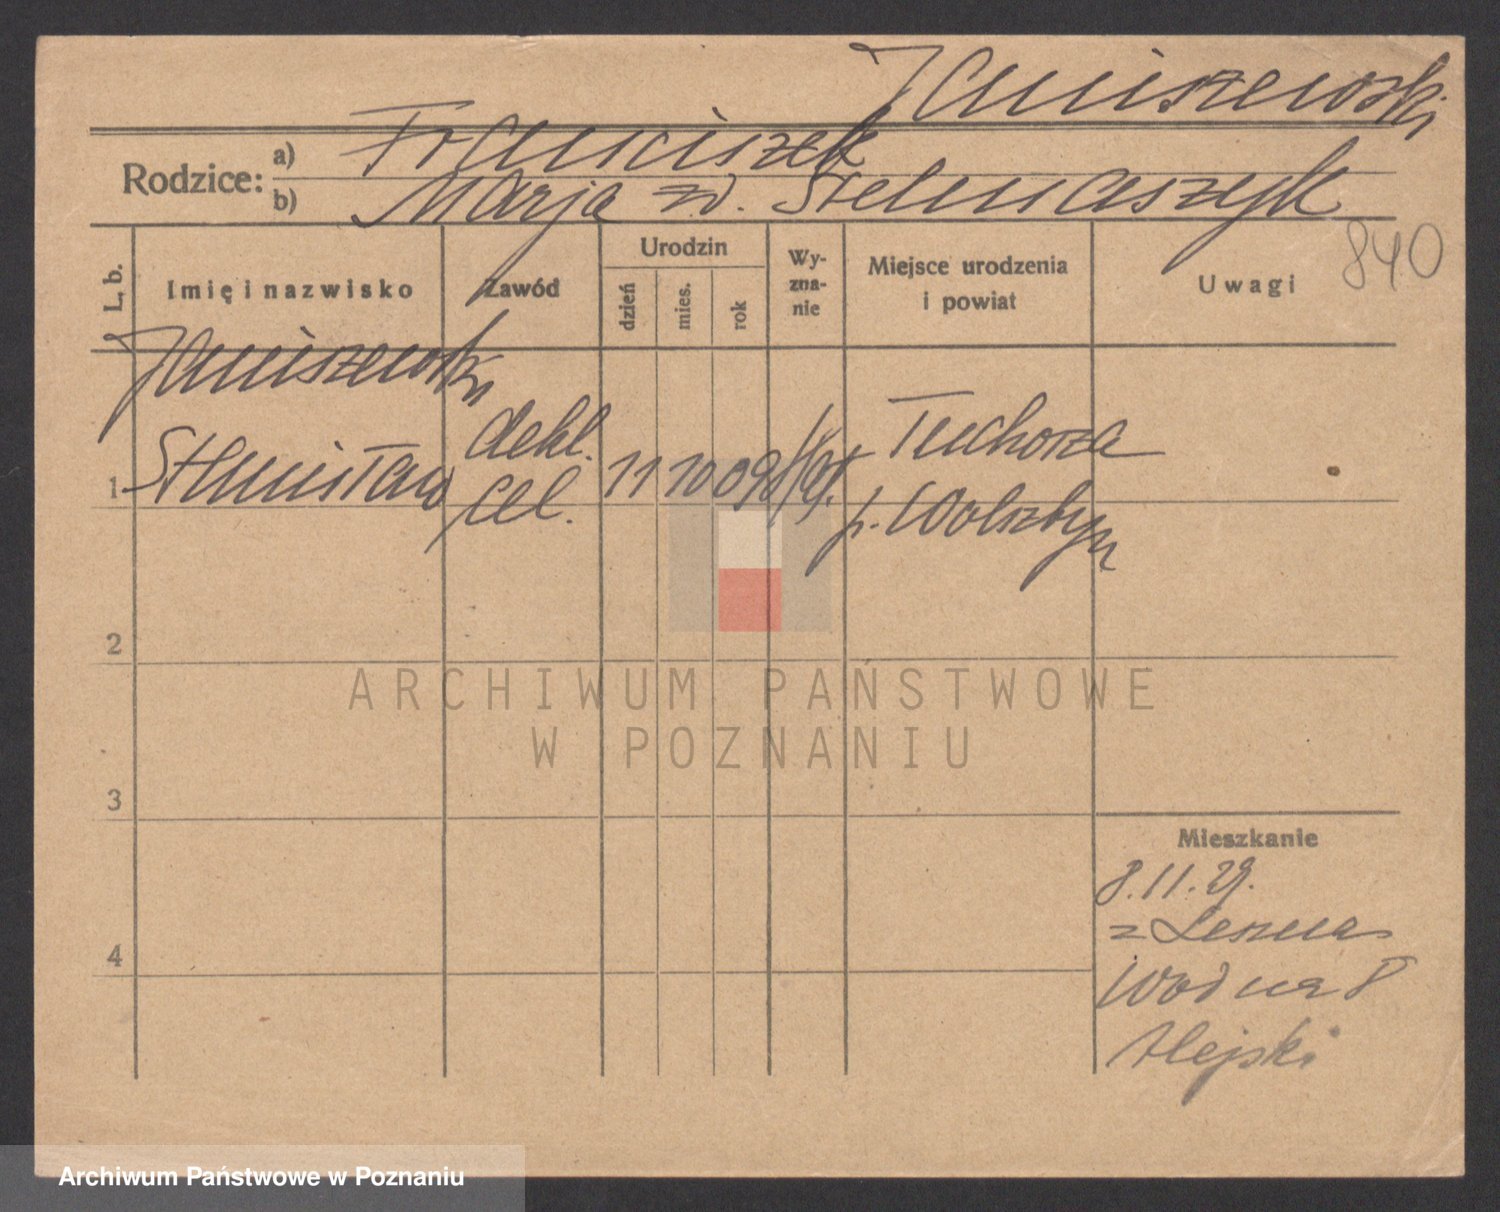 Janiszewski
Rodzice: a) Franciszek
b) Marja zd. Stelmaszyk
840
L. b. Imię i nazwisko Zawód Urodzin dzień mies. rok Wy-zna-nie Miejsce urodzenia i powiat Uwagi
Janiszewski
1 Stanisław dekl. 11 10 09 Tuchorza
p. Wolsztyn
2
3
4
Mieszkanie
8.11.29.
z Leszna
Wodna 8
ARCHIWUM PAŃSTWOWE
W POZNANIU
Archiwum Państwowe w Poznaniu